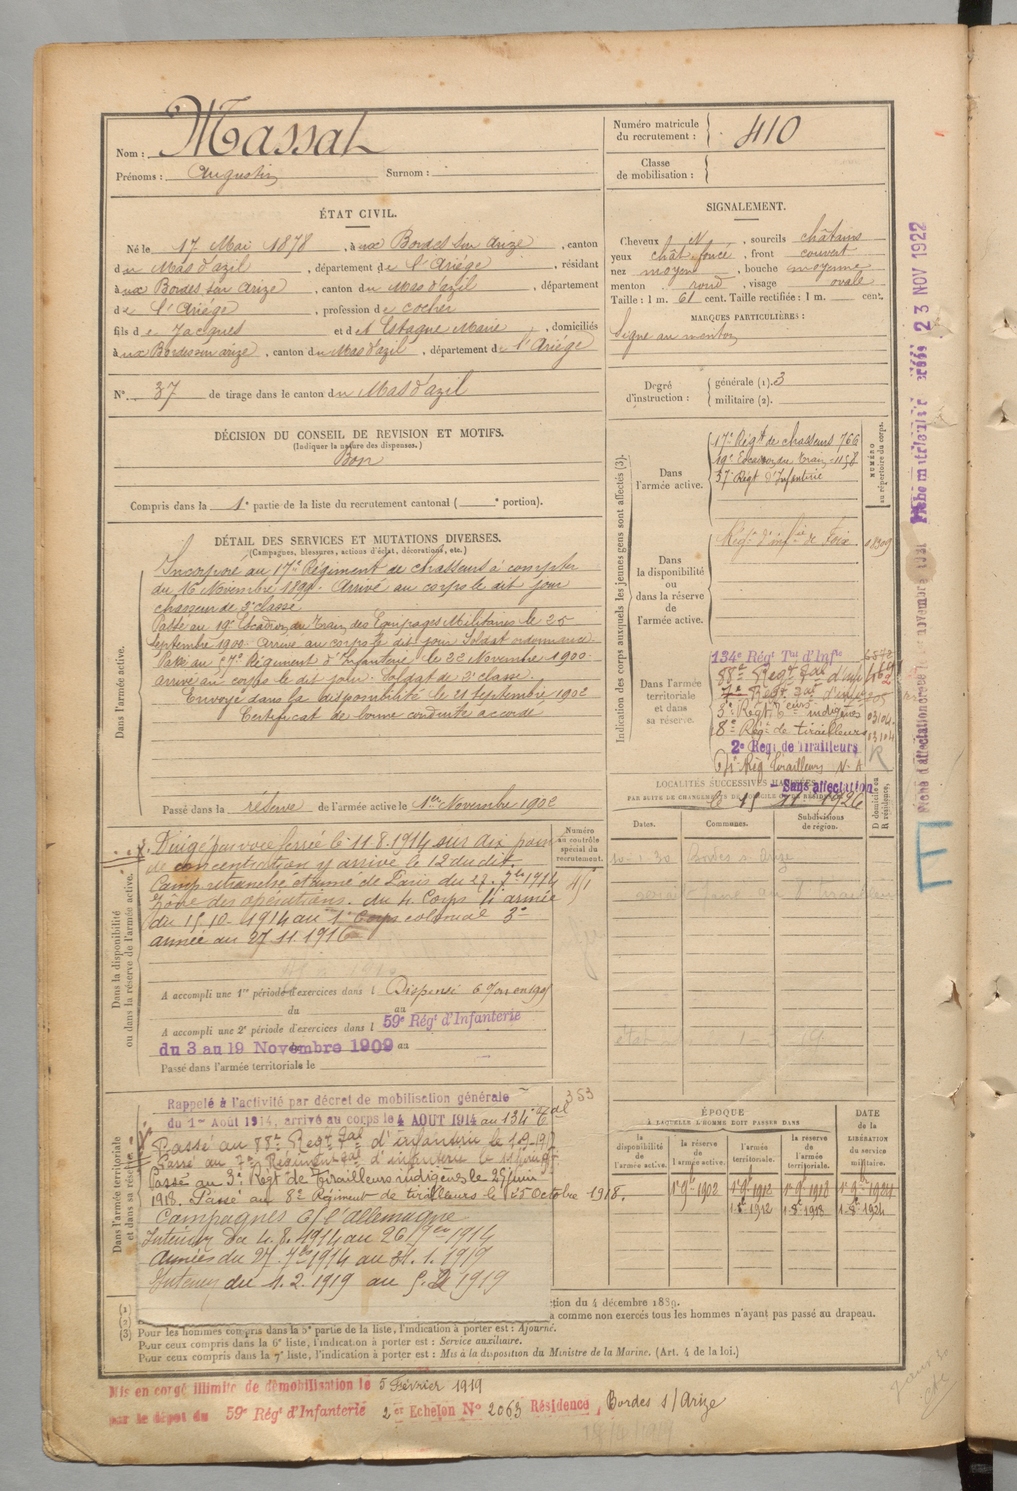 Nom : Massat
Prénoms : Augustin Surnom :
Numéro matricule
du recrutement : 410
Classe
de mobilisation :
ÉTAT CIVIL.
Né le 17 Mai 1878, à ux Bordes sur Arize, canton
du Mas d'azil, département de l'Ariége, résidant
à ux Bordes sur Arize, canton du Mas d'azil, département
de l'Ariége, profession de cocher
fils de Jacques et d'Estaque Marie, domiciliés
à ux Bordes sur arize, canton du Mas d'azil, département de l'Ariége
N° 37 de tirage dans le canton du Mas d'azil
SIGNALEMENT.
Cheveux N, sourcils châtains
yeux chât foncé, front couvert
nez moyen, bouche moyenne
menton rond, visage ovale
Taille : 1 m. 61 cent. Taille rectifiée : 1 m. cent.
MARQUES PARTICULIÈRES :
Signe au menton
Degré
d'instruction :
générale (1). 3
militaire (2).
DÉCISION DU CONSEIL DE REVISION ET MOTIFS.
(Indiquer la nature des dispenses.)
Bon
Compris dans la 1e partie de la liste du recrutement cantonal ( e portion).
DÉTAIL DES SERVICES ET MUTATIONS DIVERSES.
(Campagnes, blessures, actions d'éclat, décorations, etc.)
Dans l'armée active.
Incorporé au 17e Régiment de chasseurs à compter
du 16 Novembre 1899. Arrivé au corps le dit jour
chasseur de 2e classe
Passé au 19e Escadron du Train des Equipages Militaires le 25
septembre 1900. Arrivé au corps le dit jour Soldat ordonnance.
Passé au 37e Régiment d'Infanterie le 22 Novembre 1900.
arrivé au corps le dit jour. Soldat de 2e classe.
Envoyé dans la disponibilité le 21 septembre 1902
Certificat de bonne conduite accordé
Passé dans la réserve de l'armée active le 1er Novembre 1902
Indication des corps auxquels les jeunes gens sont affectés (3).
NUMÉRO
au répertoire du corps.
Dans
l'armée active.
17e Régt de chasseurs 766
19e Escadron du Train 1158
37e Régt d'Infanterie
Dans
la disponibilité
ou dans la réserve
de
l'armée active.
Régt d'infie de Foix
Dans l'armée
territoriale
et dans
sa réserve.
134e Régt Tal d'Infie
88e Regt Tal d'inf
7e Regt Tal d'inf
3e Régt Teurs indigènes
8e Régt de tirailleurs
2e Régt de Tirailleurs
Régt tirailleurs N. A
Sans affectation
le 15 11 1926
LOCALITÉS SUCCESSIVES HABITÉES
PAR SUITE DE CHANGEMENT DE DOMICILE OU DE RÉSIDENCE
D domicile ou
R résidence.
Dates. Communes. Subdivisions
de région.
Bordes s. Arize
Dans la disponibilité
ou dans la réserve de l'armée active.
Numéro
au contrôle
spécial du
recrutement.
Dirigé par voie ferrée le 11.8.1914 sur Aix point
de concentration y arrivé le 12 du dit.
Camp retranché et armé de Paris du 27. 7bre 1914
Zone des opérations. du 4 Corps 4e armée
du 15.10.1914 au 1e Corps colonial 3e
armée au 27.11.1916
A accompli une 1re période d'exercices dans l Dispensé
du au
A accompli une 2e période d'exercices dans l 59e Régt d'Infanterie
du 3 au 19 Novembre 1909 au
Passé dans l'armée territoriale le
Dans l'armée territoriale
et dans sa réserve.
Rappelé à l'activité par décret de mobilisation générale
du 1er Août 1914, arrivé au corps le 4 AOUT 1914 au 134e Tal
353
Passé au 88e Regt Tal d'infanterie le
Passé au 7e Régiment Tal d'infanterie le
Passé au 3e Régt de Tirailleurs indigènes le 25 juin
1918. Passé au 8e Régiment de tirailleurs le 25 Octobre 1918.
Campagnes C/ l'Allemagne
Intérieur du 4.8.1914 au 26 7bre 1914
Armées du 27. 7bre 1914 au 31.1.1919
Intérieur du 1.2.1919 au 5.2 1919
ÉPOQUE
À LAQUELLE L'HOMME DOIT PASSER DANS
DATE
de la
LIBÉRATION
du service
militaire.
la disponibilité de l'armée active. la réserve de l'armée active. l'armée territoriale. la réserve de l'armée territoriale.
1er 9bre 1902 1er 9bre 1912 1er 9bre 1918 1er 9bre 1924
1.8e 1912 1.8e 1918 1.8e 1924
(1)
(2)
(3)
ction du 4 décembre 1889.
a comme non exercés tous les hommes n'ayant pas passé au drapeau.
Pour les hommes compris dans la 5e partie de la liste, l'indication à porter est : Ajourné.
Pour ceux compris dans la 6e liste, l'indication à porter est : Service auxiliaire.
Pour ceux compris dans la 7e liste, l'indication à porter est : Mis à la disposition du Ministre de la Marine. (Art. 4 de la loi.)
Mis en congé illimité de démobilisation le 5 Février 1919
par le dépôt du 59e Régt d'Infanterie 2er Echelon N° 2063 Résidence, Bordes s/ Arize
23 NOV 1922